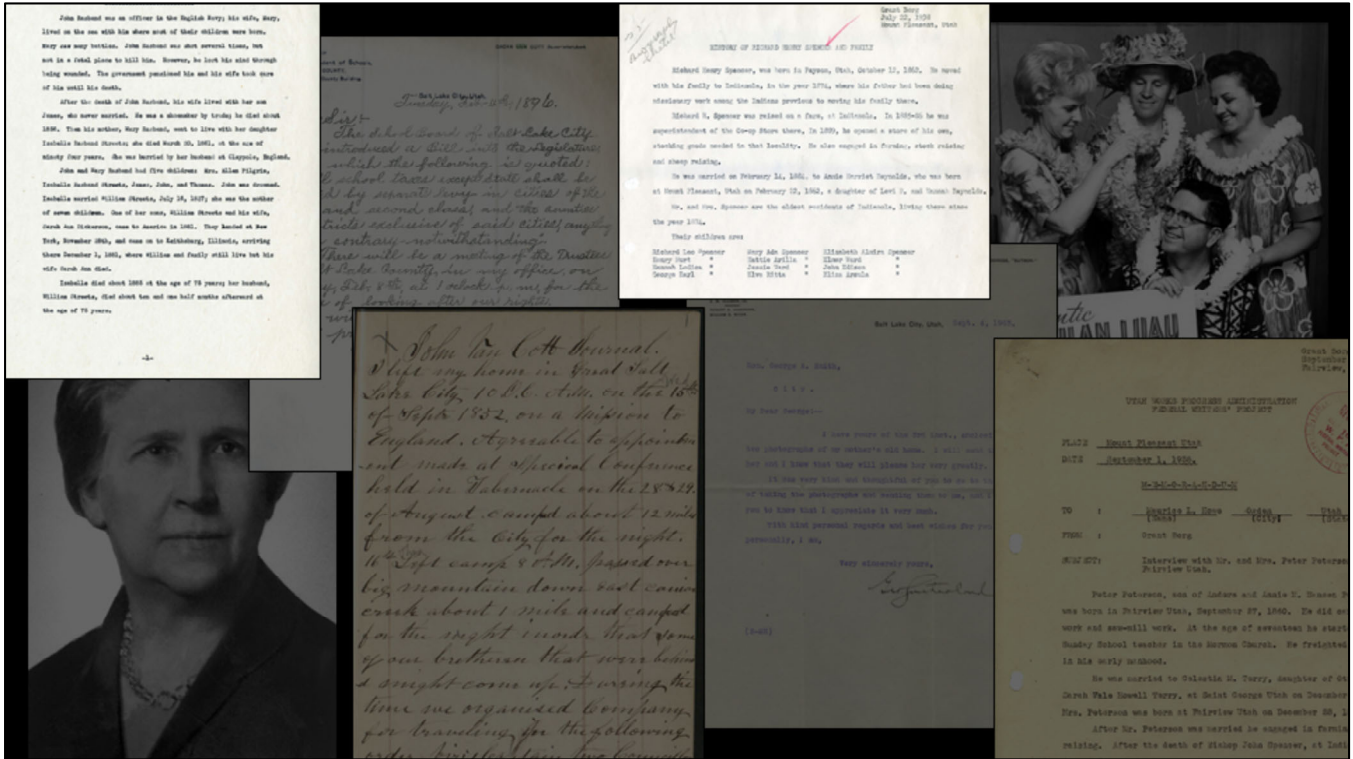 John Husband was an officer in the English Navy; his wife, Mary,
lived on the sea with him where most of their children were born.
Mary saw many battles. John Husband was shot several times, but
not in a fatal place to kill him. However, he lost his mind through
being wounded. The government pensioned his and his wife took care
of him until his death.
After the death of John Husband, his wife lived with her son
James, who never married. He was a shoemaker by trade; he died about
Then his mother, Mary Husband, went to live with her daughter
Isabella Husband Streets; she died March 20, 1881, at the age of
ninety four years. She was married by her husband at Claypole, England.
John and Mary Husband had five children: Mrs. Ellen Pilgrim,
Isabella Husband Streets, James, John, and Thomas. John was drowned.
Isabella married William Streets, July 18, 1837; she was the mother
of seven children. One of her sons, William Streets and his wife,
Sarah Ann Dickerson, came to America in 1881. They landed at New
York, November 28th, and came on to Keithsburg, Illinois, arriving
there December 1, 1881, where William and family still live but his
wife Sarah Ann died.
Isabella died about 1888 at the age of 75 years; her husband,
William Streets, died about ten and one half months afterward at
the age of 75 years.
-1-
Salt Lake City, Utah,
Tuesday, Feb 4th, 1896.
Sir:-
The School Board of Salt Lake City
introduced a Bill into the Legislature
which the following is quoted:
l school taxes except state shall be
d by separate levy in cities of the
and second classes, and the counties
exclusive of said cities, anything
contrary notwithstanding."
There will be a meeting of the Trustees
t Lake County, in my office, on
y, Feb 8th, at 1 o'clock p.m. for the
of looking after our rights.
Grant Berg
July 22, 1936
Mount Pleasant, Utah
HISTORY OF RICHARD HENRY SPENCER AND FAMILY
Richard Henry Spencer, was born in Payson, Utah, October 12, 1862. He moved
with his family to Indianola, in the year 1874, where his father had been doing
missionary work among the Indians previous to moving his family there.
Richard H. Spencer was raised on a farm, at Indianola. In 1885-86 he was
superintendent of the Co-op Store there. In 1889, he opened a store of his own,
stocking goods needed in that locality. He also engaged in farming, stock raising
and sheep raising.
He was married on February 14, 1884, to Annie Harriet Reynolds, who was born
at Mount Pleasant, Utah on February 12, 1862, a daughter of Levi B. and Hannah Reynolds.
Mr. and Mrs. Spencer are the oldest residents of Indianola, living there since
the year 1874.
Their children are:
Richard Lee Spencer Mary Ada Spencer Elizabeth Almira Spencer
Henry Mart " Hattie Arilla " Elmer Ward "
Hannah Ludina " Jessie Ward " John Edison "
George Earl " Elva Ritta " Eliza Armala "
ntic
LAN LUAU
John Van Cott Journal.
I left my home in Great Salt
Lake City 10 O.C. A.M. on the 15th
of Sept 1852 on a mission to
England. Agreeable to appointm
ent made at Special Conference
held in Tabernacle on the 28 & 29.
of August camped about 12 miles
from the City for the night.
16th Left camp 8 A.M. passed over
big mountain down east canion
creek about 1 mile and camped
for the night in order that some
of our brotheren that were behind
might come up. During the
time we organised Company
for traveling in the following
order
Salt Lake City, Utah, Sept. 4,
Hon. George A. Smith,
City.
My Dear George:-
I have yours of the 1st inst.,
few photographs of my mother's old home. I will
her and I know that they will please her very greatly.
It was very kind and thoughtful of you to
of taking the photographs and sending them to me, and I
you to know that I appreciate it very much.
With kind personal regards and best wishes for you
personally, I am,
Very sincerely yours,
Grant Berg
September
Fairview,
UTAH WORKS PROGRESS ADMINISTRATION
FEDERAL WRITERS' PROJECT
PLACE Mount Pleasant Utah
DATE September 1, 1936.
M-E-M-O-R-A-N-D-U-M
TO : Maurice L. Howe Ogden Utah
(Name) (City) (State
FROM : Grant Berg
SUBJECT: Interview with Mr. and Mrs. Peter Peterson
Fairview Utah.
Peter Peterson, son of Anders and Annie M. Hansen P
was born in Fairview Utah, September 27, 1860. He did
work and saw-mill work. At the age of seventeen he start
Sunday School teacher in the Mormon Church. He freighted
in his early manhood.
He was married to Celestia M. Terry, daughter of
Sarah Vale Howell Terry, at Saint George Utah on December
Mrs. Peterson was born at Fairview Utah on December 28, 1
After Mr. Peterson was married he engaged in farmin
raising. After the death of Bishop John Spencer, at Indi